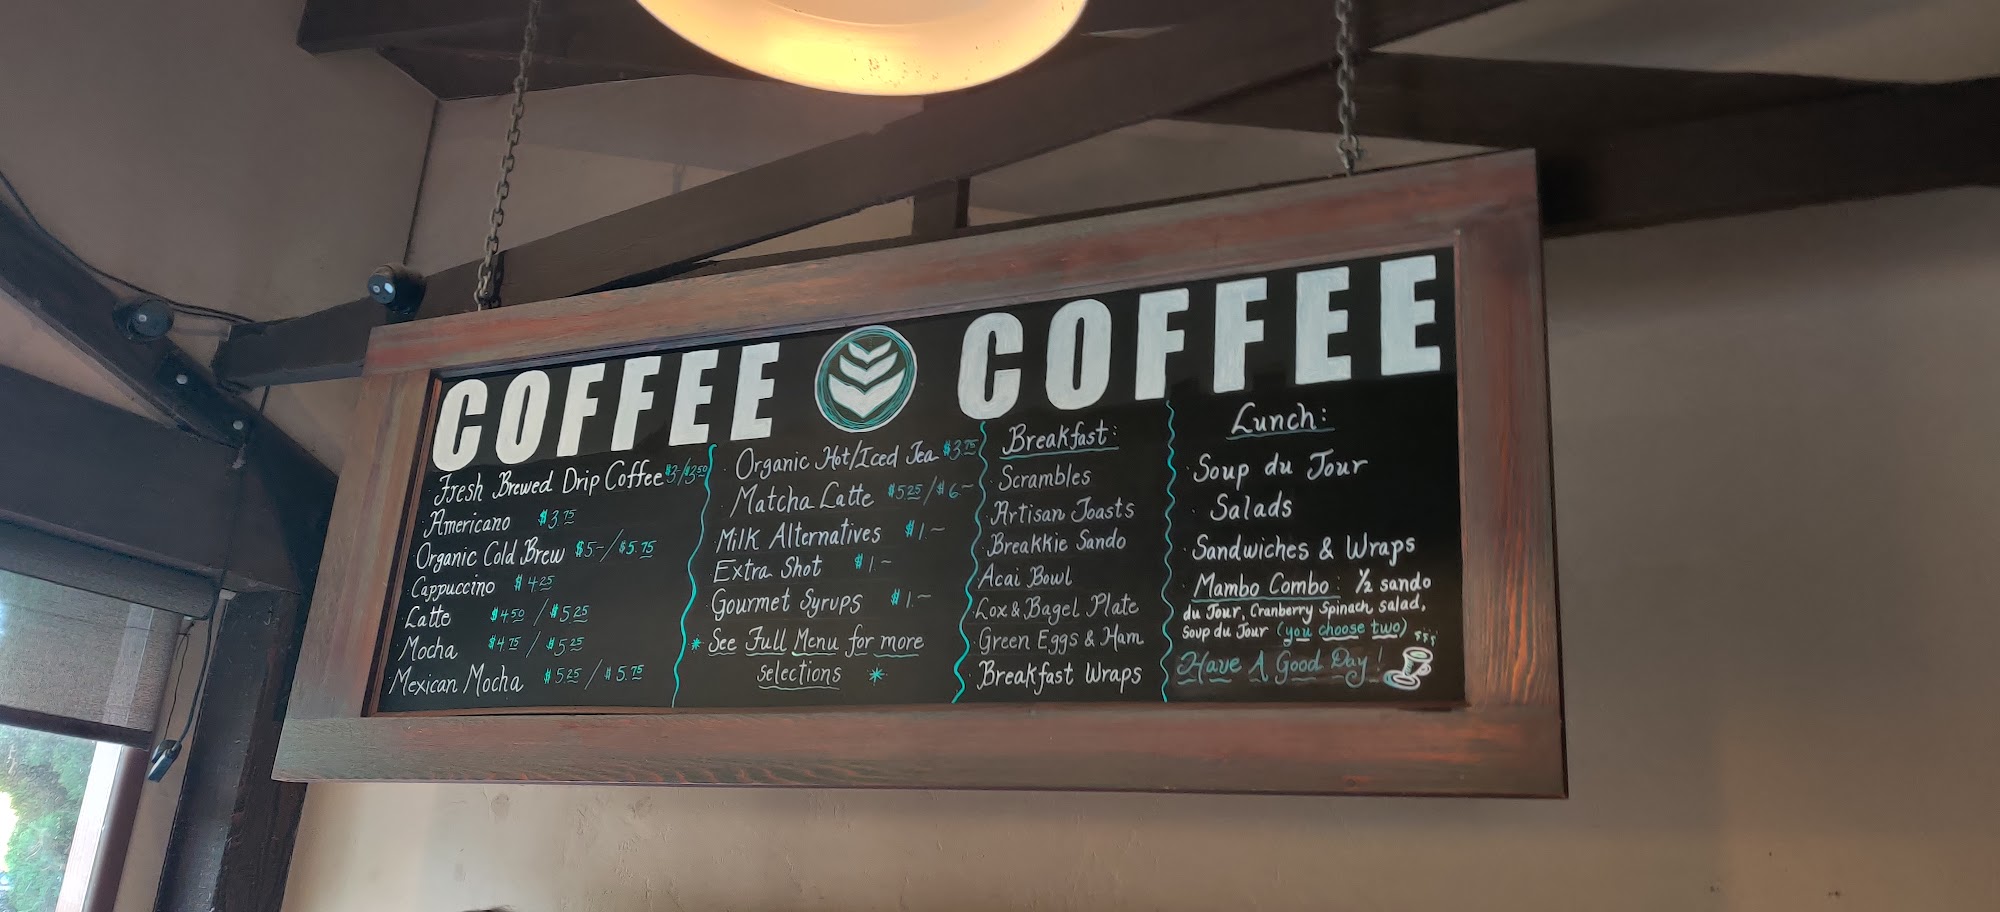 COFFEE COFFEE
Fresh Brewed Drip Coffee $3-/$3.50
Americano $3.75
Organic Cold Brew $5-/$5.75
Cappuccino $4.25
Latte $4.50 / $5.25
Mocha $4.75 / $5.25
Mexican Mocha $5.25 / $5.75
Organic Hot/Iced Tea $3.75
Matcha Latte $5.25 / $6-
Milk Alternatives $1.-
Extra Shot $1-
Gourmet Syrups $1.-
* See Full Menu for more
selections *
Breakfast:
Scrambles
Artisan Toasts
Breakkie Sando
Acai Bowl
Lox & Bagel Plate
Green Eggs & Ham
Breakfast Wraps
Lunch:
Soup du Jour
Salads
Sandwiches & Wraps
Mambo Combo: ½ sando
du Jour, Cranberry Spinach salad,
Soup du Jour (you choose two)
Have A Good Day!